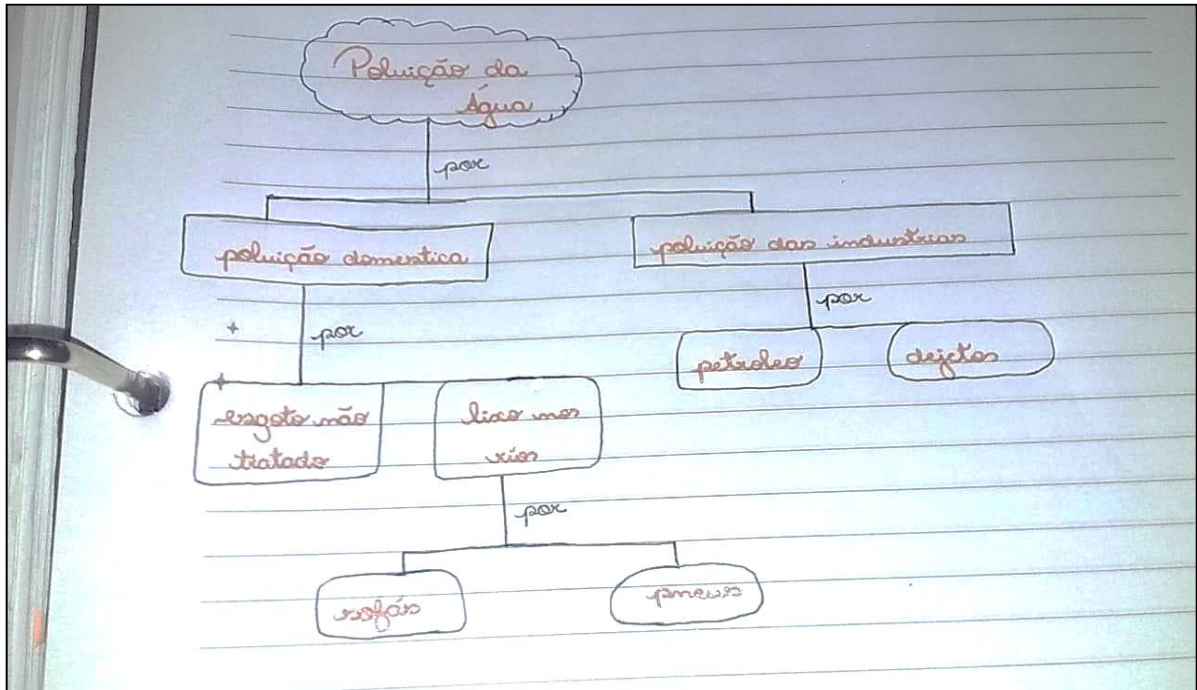 Poluição da
Água
por
poluição domestica
poluição das industrias
por
por
petroleo
dejetos
esgoto não
tratado
lixo nos
rios
por
sofás
pneus